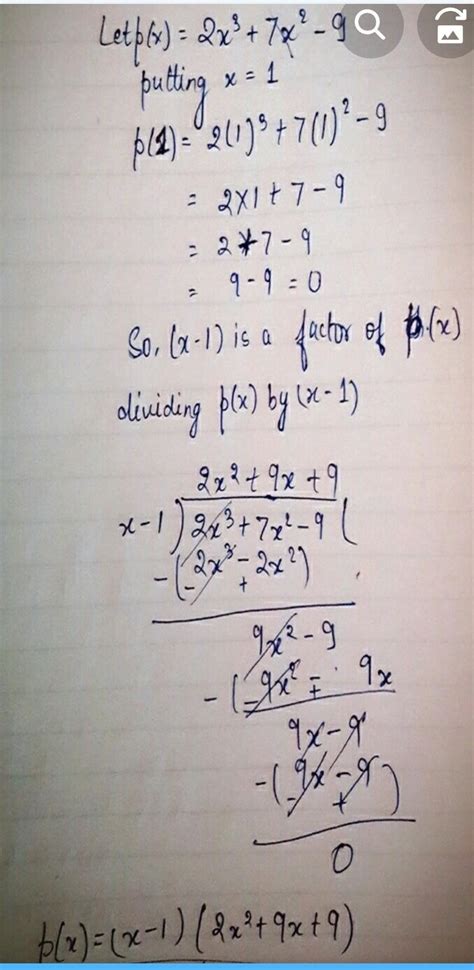 Let p(x) = 2x³ + 7x² - 9
putting x = 1
p(1) = 2(1)³ + 7(1)² - 9
= 2×1 + 7 - 9
= 2+7 - 9
= 9 - 9 = 0
So, (x-1) is a factor of p(x)
dividing p(x) by (x-1)
2x² + 9x + 9
x-1 ) 2x³ + 7x² - 9 (
-(2x³ - 2x²)
- +
9x² - 9
-( 9x² - 9x
- +
9x - 9
-(9x - 9)
- +
0
p(x) = (x-1) (2x² + 9x + 9)